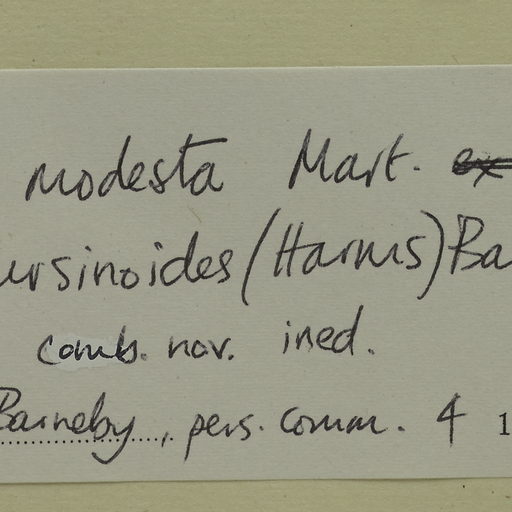 modesta Mart. ex
ursinoides (Harms) Ba
comb. nov. ined.
Barneby, pers. comm. 4 1